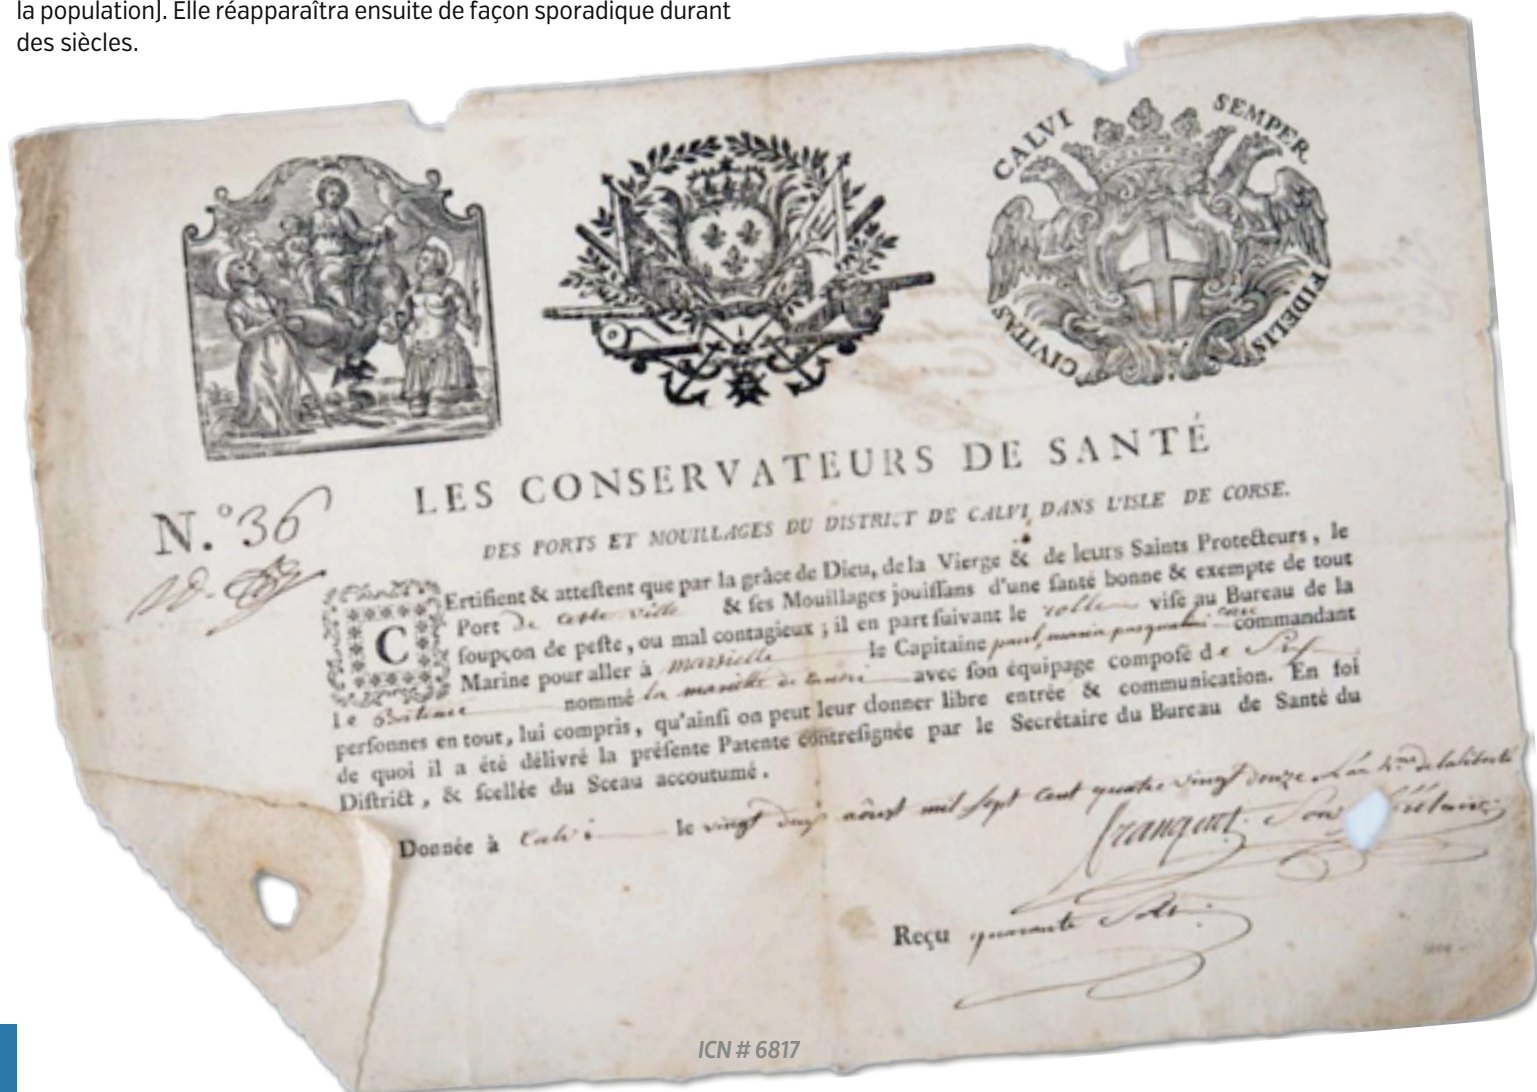 la population]. Elle réapparaîtra ensuite de façon sporadique durant
des siècles.
CALVI SEMPER
CIVITAS FIDELIS
LES CONSERVATEURS DE SANTÉ
N.º 36
DES PORTS ET MOUILLAGES DU DISTRICT DE CALVI DANS L'ISLE DE CORSE.
CErtifient & atteſtent que par la grâce de Dieu, de la Vierge & de leurs Saints Protecteurs, le
Port de cette ville & ſes Mouillages jouiſſans d'une ſanté bonne & exempte de tout
ſoupçon de peſte, ou mal contagieux ; il en part ſuivant le rolle viſé au Bureau de la
Marine pour aller à marseille le Capitaine commandant
le nommé avec ſon équipage compoſé de
perſonnes en tout, lui compris, qu'ainſi on peut leur donner libre entrée & communication. En foi
de quoi il a été délivré la préſente Patente contreſignée par le Secrétaire du Bureau de Santé du
Diſtrict, & ſcellée du Sceau accoutumé.
Donnée à Calvi le vingt aôust mil sept cent quatre vingt douze L'an 4.me de la liberté
Reçu quarante Sols
ICN # 6817